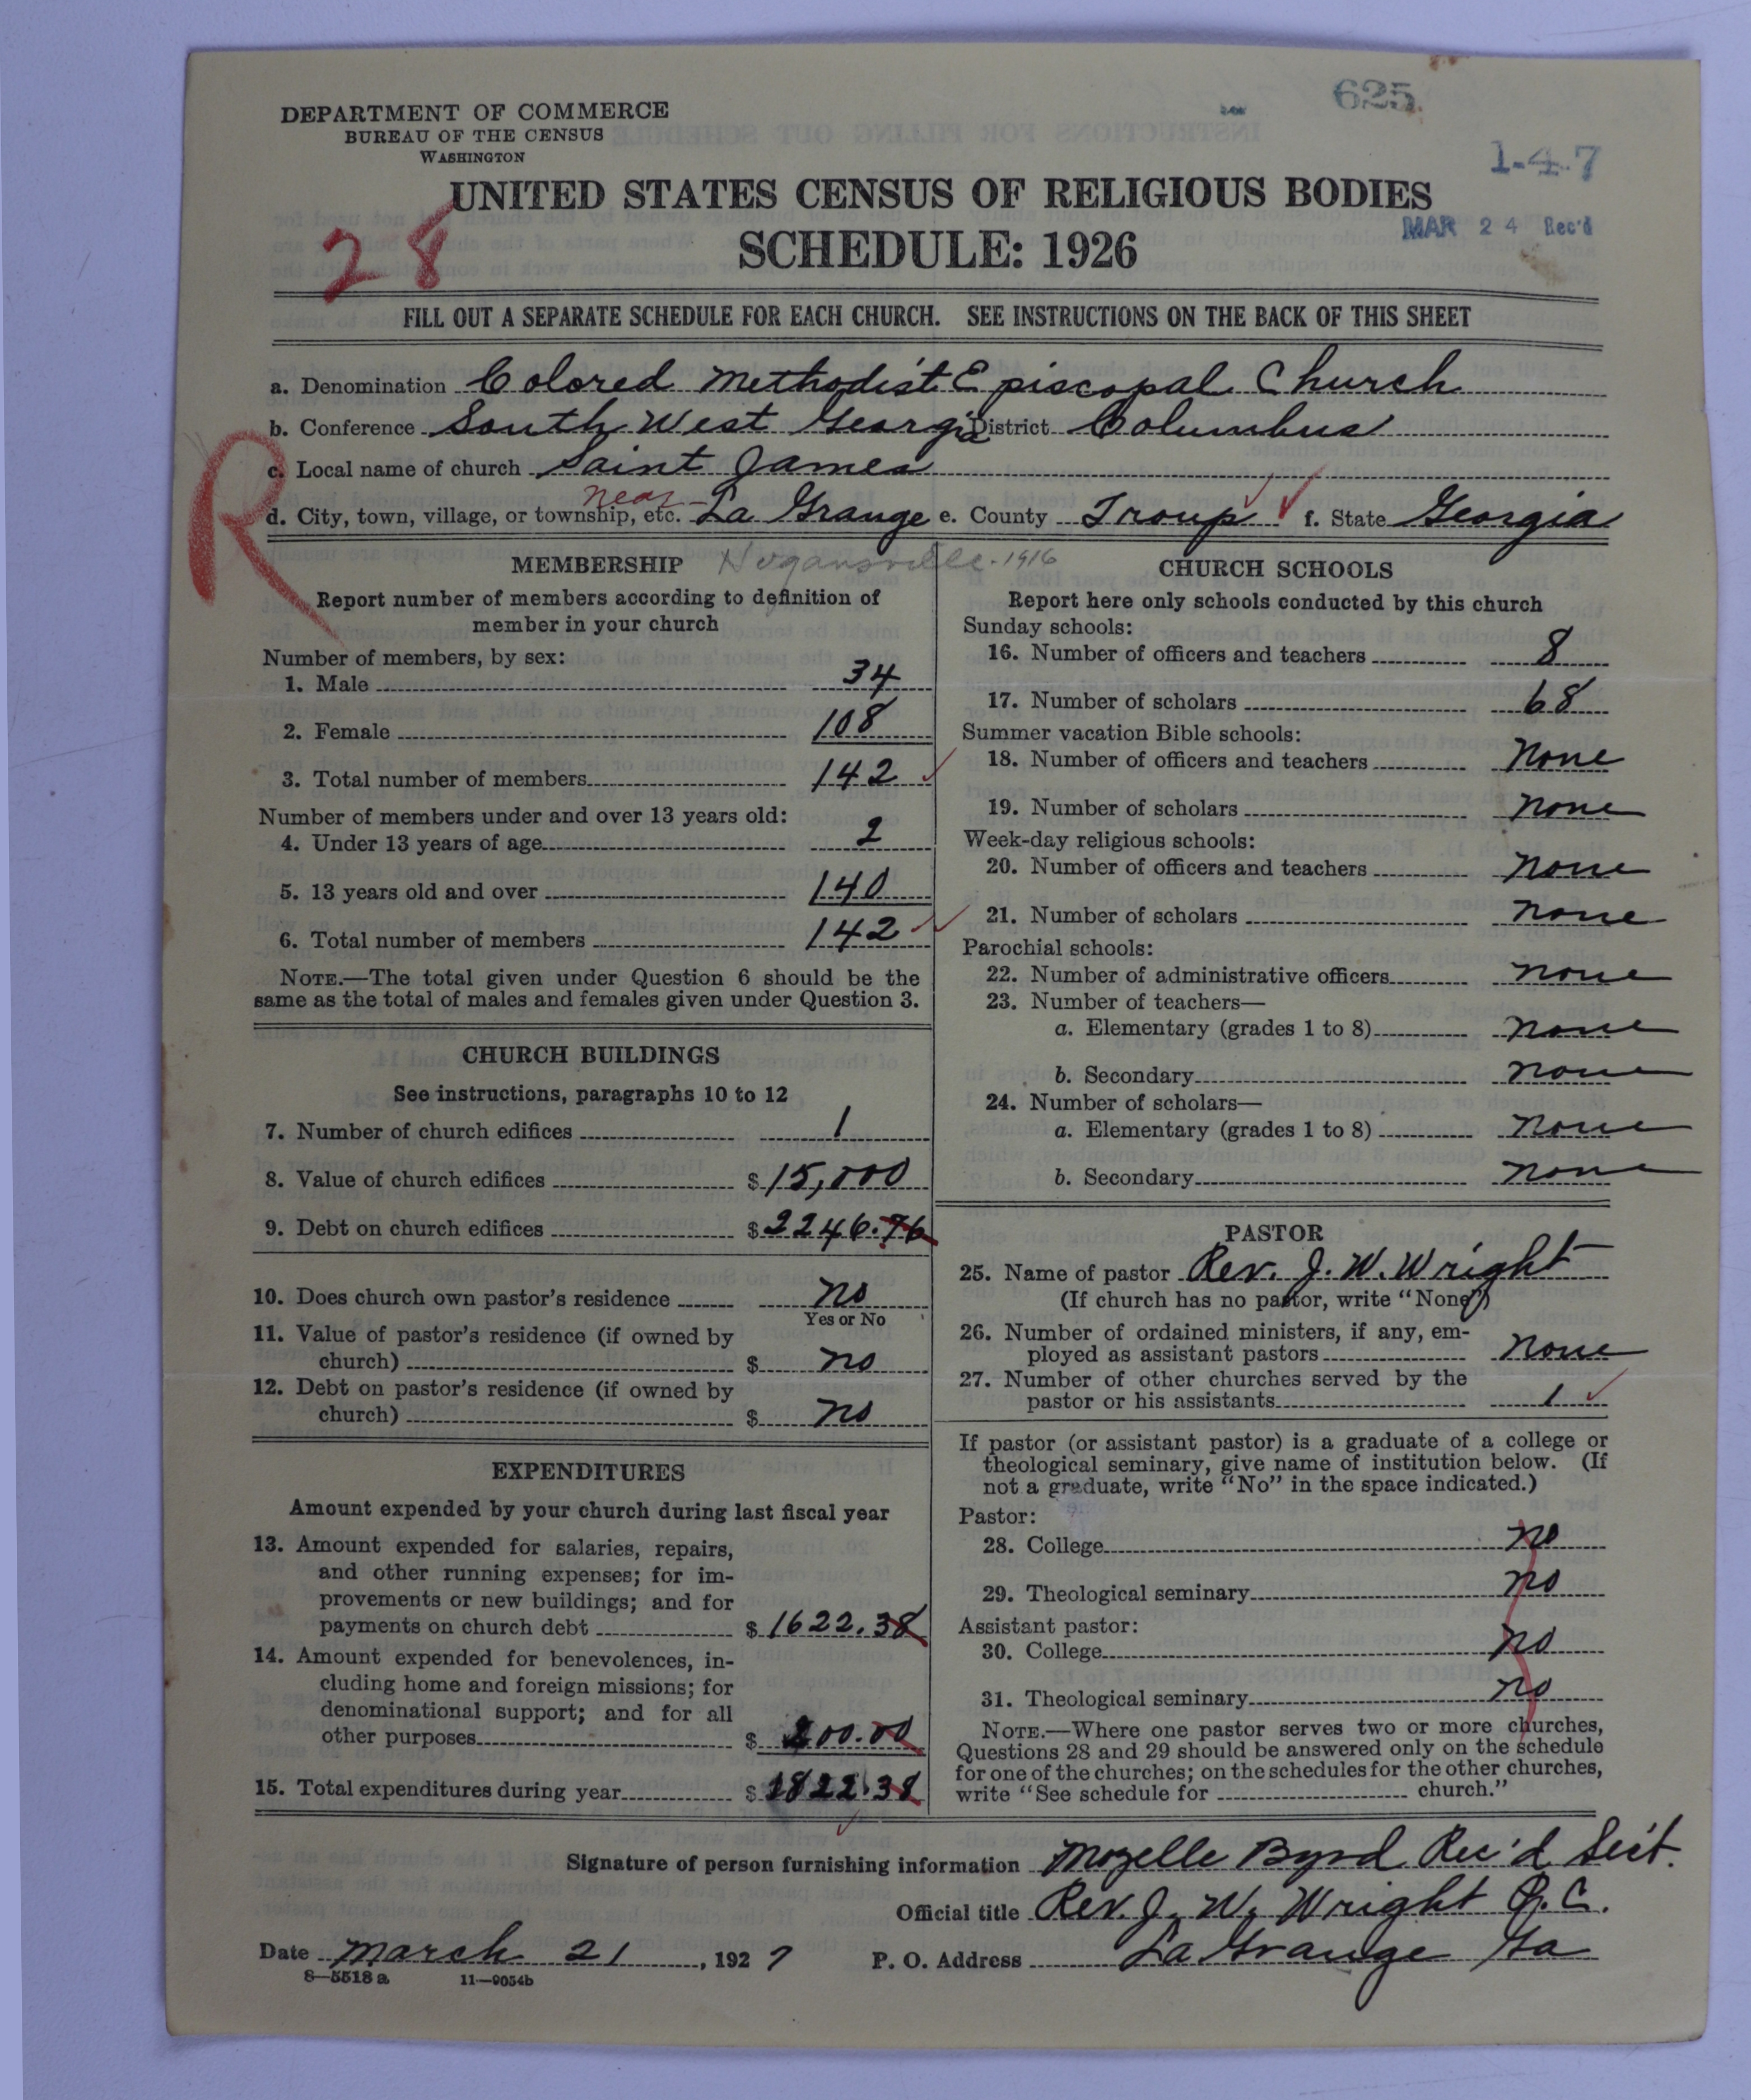 625
DEPARTMENT OF COMMERCE
BUREAU OF THE CENSUS
WASHINGTON
1-4-7
UNITED STATES CENSUS OF RELIGIOUS BODIES
MAR 24 Rec'd
28
SCHEDULE: 1926
FILL OUT A SEPARATE SCHEDULE FOR EACH CHURCH. SEE INSTRUCTIONS ON THE BACK OF THIS SHEET
a. Denomination Colored Methodist Episcopal Church
b. Conference South West Georgia District Columbus
R
c. Local name of church Saint James
near
d. City, town, village, or township, etc. La Grange e. County Troup f. State Georgia
MEMBERSHIP Hogansville-1916
Report number of members according to definition of
member in your church
Number of members, by sex:
1. Male 34
2. Female 108
3. Total number of members 142
Number of members under and over 13 years old:
4. Under 13 years of age 2
5. 13 years old and over 140
6. Total number of members 142
NOTE.—The total given under Question 6 should be the
same as the total of males and females given under Question 3.
CHURCH BUILDINGS
See instructions, paragraphs 10 to 12
7. Number of church edifices 1
8. Value of church edifices $ 15,000
9. Debt on church edifices $ 2246.76
10. Does church own pastor's residence no
Yes or No
11. Value of pastor's residence (if owned by
church) $ no
12. Debt on pastor's residence (if owned by
church) $ no
EXPENDITURES
Amount expended by your church during last fiscal year
13. Amount expended for salaries, repairs,
and other running expenses; for im-
provements or new buildings; and for
payments on church debt $ 1622.38
14. Amount expended for benevolences, in-
cluding home and foreign missions; for
denominational support; and for all
other purposes $ 200.00
15. Total expenditures during year $ 1822.38
CHURCH SCHOOLS
Report here only schools conducted by this church
Sunday schools:
16. Number of officers and teachers 8
17. Number of scholars 68
Summer vacation Bible schools:
18. Number of officers and teachers None
19. Number of scholars none
Week-day religious schools:
20. Number of officers and teachers none
21. Number of scholars none
Parochial schools:
22. Number of administrative officers none
23. Number of teachers—
a. Elementary (grades 1 to 8) none
b. Secondary none
24. Number of scholars—
a. Elementary (grades 1 to 8) none
b. Secondary none
PASTOR
25. Name of pastor Rev. J. W. Wright
(If church has no pastor, write "None")
26. Number of ordained ministers, if any, em-
ployed as assistant pastors none
27. Number of other churches served by the
pastor or his assistants 1
If pastor (or assistant pastor) is a graduate of a college or
theological seminary, give name of institution below. (If
not a graduate, write "No" in the space indicated.)
Pastor:
28. College no
29. Theological seminary no
Assistant pastor:
30. College no
31. Theological seminary no
NOTE.—Where one pastor serves two or more churches,
Questions 28 and 29 should be answered only on the schedule
for one of the churches; on the schedules for the other churches,
write "See schedule for church."
Signature of person furnishing information Mozelle Byrd Rec'd Sect.
Official title Rev. J. W. Wright P. C.
Date March 21, 1927 P. O. Address La Grange Ga
8—5518a 11—9054b